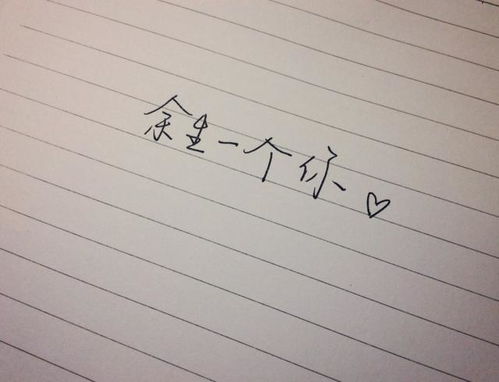 余生一个你♡